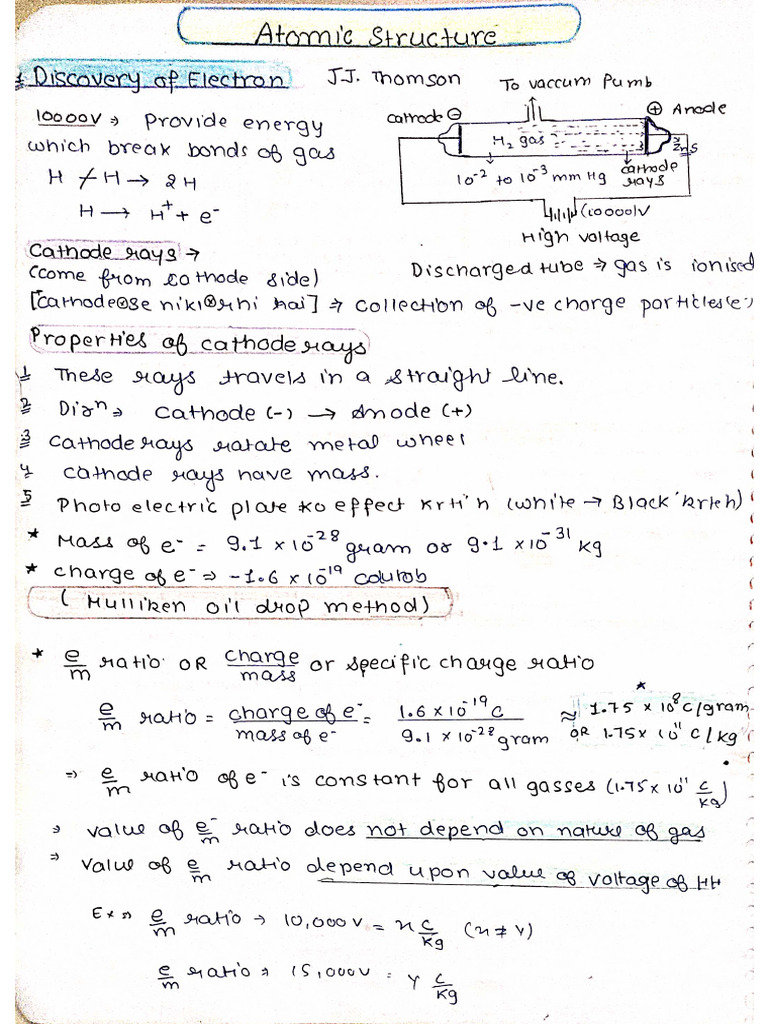 Atomic Structure
1 Discovery of Electron J.J. Thomson
To vaccum Pumb
cathode ⊖
⊕ Anode
10000V ⇒ Provide energy
which break bonds of gas
H2 gas
ZnS
cathode rays
10^-2 to 10^-3 mm Hg
H ≁ H → 2H
H → H^+ + e^-
(10000)V
High voltage
Cathode rays →
(come from cathode side)
Discharged tube ⇒ gas is ionised
[Cathode se nikl rhi hai] ⇒ Collection of -ve charge particles(e-)
Properties of cathode rays
1 These rays travels in a straight line.
2 Dirⁿ ⇒ Cathode (-) → Anode (+)
3 Cathode rays ratate metal wheel
4 Cathode rays have mass.
5 Photo electric plate ko effect krti h (white → Black krteh)
* Mass of e^- = 9.1 × 10^-28 gram or 9.1 × 10^-31 kg
* charge of e^- ⇒ -1.6 × 10^-19 coulob
(Mulliken oil drop method)
* e/m ratio OR charge/mass or specific charge ratio
e/m ratio = charge of e^-/mass of e^- = 1.6 × 10^-19 C/9.1 × 10^-28 gram ≈ * 1.75 × 10^8 C/gram
OR 1.75 x 10^11 C/kg
⇒ e/m ratio of e^- is constant for all gasses (1.75 × 10^11 C/kg)
⇒ value of e^-/m ratio does not depend on nature of gas
⇒ value of e/m ratio depend upon value of voltage of
Ex ⇒ e/m ratio → 10,000V = x C/kg (x ≠ y)
e/m ratio ⇒ 15,000V = y C/kg